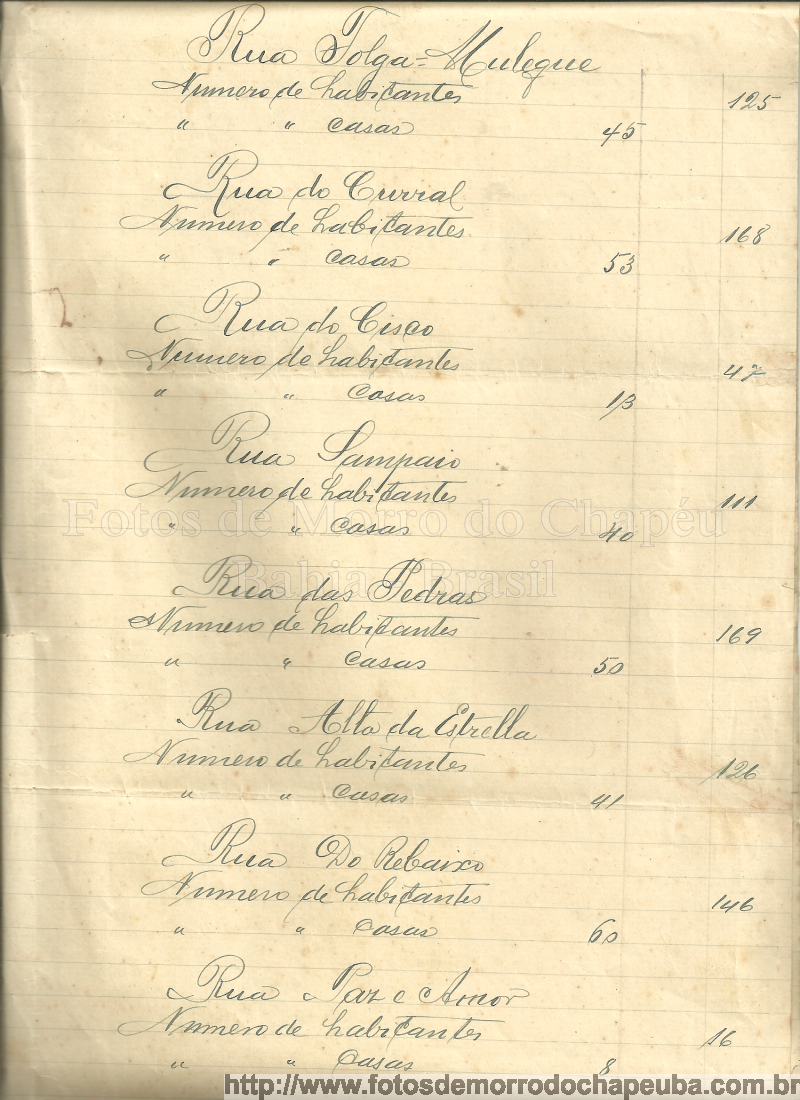 Rua Folga=Muleque
Numero de habitantes 125
" " casas 45
Rua do Curral
Numero de habitantes 168
" " casas 53
Rua do Cisco
Numero de habitantes 47
" " casas 13
Rua Sampaio
Numero de habitantes 111
" " casas 40
Fotos de Morro do Chapéu
Bahia - Brasil
Rua das Pedras
Numero de habitantes 169
" " casas 50
Rua Alto da Estrella
Numero de habitantes 126
" " casas 41
Rua Do Rebaixo
Numero de habitantes 146
" " casas 60
Rua Paz e Amor
Numero de habitantes 16
" " casas 8
http://www.fotosdemorrodochapeuba.com.br